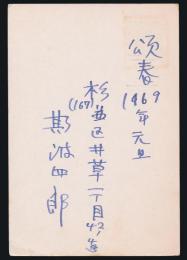 頌春
1969年元旦
杉並区井草一丁目42
(167)
斯波四郎